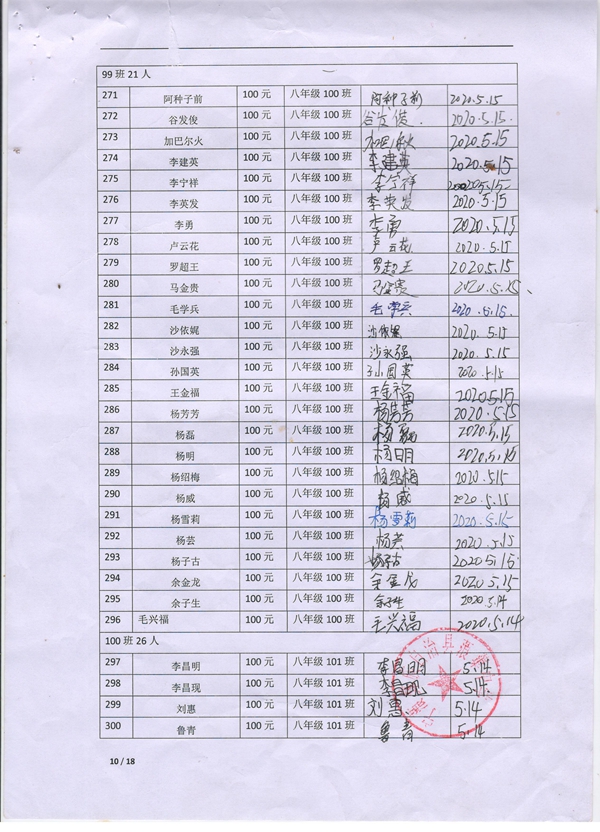 99 班 21 人
271 阿种子前 100 元 八年级 100 班 阿种子前 2020.5.15
272 谷发俊 100 元 八年级 100 班 谷发俊. 2020.5.15.
273 加巴尔火 100 元 八年级 100 班 2020.5.15
274 李建英 100 元 八年级 100 班 李建英 2020.5.15
275 李宁祥 100 元 八年级 100 班 李宁祥 2020.5.15
276 李英发 100 元 八年级 100 班 李英发 2020.5.15
277 李勇 100 元 八年级 100 班 李勇 2020.5.15
278 卢云花 100 元 八年级 100 班 卢云花 2020.5.15
279 罗超王 100 元 八年级 100 班 罗超王 2020.5.15
280 马金贵 100 元 八年级 100 班 马金贵 2020.5.15、
281 毛学兵 100 元 八年级 100 班 毛学兵 2020.5.15.
282 沙依妮 100 元 八年级 100 班 沙依妮 2020.5.15
283 沙永强 100 元 八年级 100 班 沙永强 2020.5.15
284 孙国英 100 元 八年级 100 班 孙国英 2020.5.15
285 王金福 100 元 八年级 100 班 王金福 2020.5.15
286 杨芳芳 100 元 八年级 100 班 杨芳芳 2020.5.15
287 杨磊 100 元 八年级 100 班 杨磊 2020.5.15
288 杨明 100 元 八年级 100 班 杨明 2020.5.15
289 杨绍梅 100 元 八年级 100 班 杨绍梅 2020.5.15
290 杨威 100 元 八年级 100 班 杨威 2020.5.15
291 杨雪莉 100 元 八年级 100 班 杨雪莉 2020.5.15
292 杨芸 100 元 八年级 100 班 杨芸 2020.5.15
293 杨子古 100 元 八年级 100 班 杨子古 2020.5.15
294 余金龙 100 元 八年级 100 班 余金龙 2020.5.15
295 余子生 100 元 八年级 100 班 余子生 2020.5.14
296 毛兴福 100 元 八年级 100 班 毛兴福 2020.5.14
100 班 26 人
297 李昌明 100 元 八年级 101 班 李昌明 5.14
298 李昌现 100 元 八年级 101 班 李昌现 5.14.
299 刘惠 100 元 八年级 101 班 刘惠 5.14
300 鲁青 100 元 八年级 101 班 鲁青 5.14
自治县
10 / 18